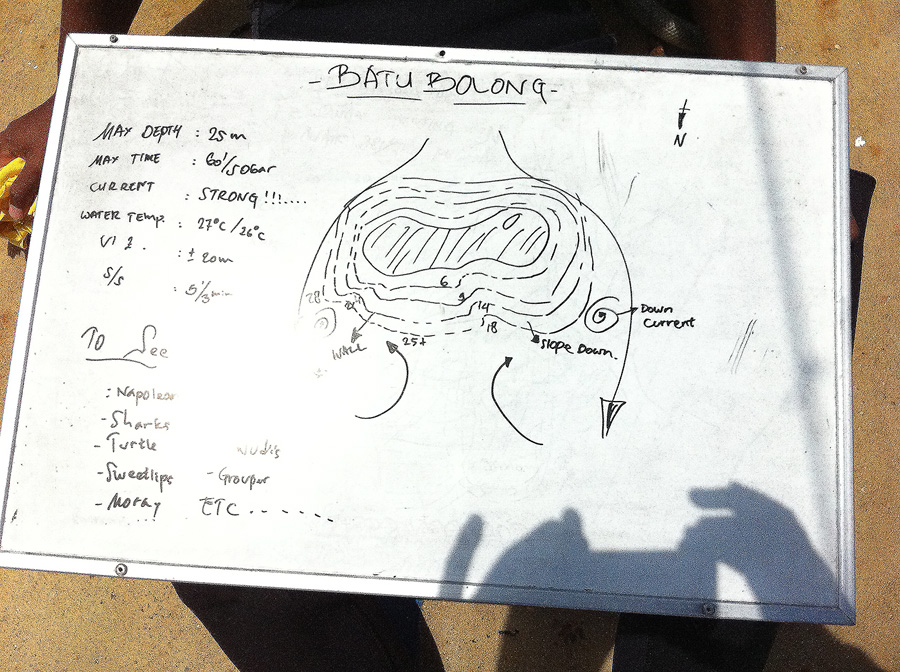 - BATU BOLONG -
N
MAX DEPTH : 25m
MAX TIME : 60'/50bar
CURRENT : STRONG!!!....
WATER TEMP. : 27°C/26°C
VIZ. : ± 20m
S/S : 5'/3min
TO See
: Napoleon
- Sharks
- Turtle
- Sweetlips - Grouper
- Moray ETC......
6
9
14
18
25+
28
WALL
Slope Down.
Down
Current